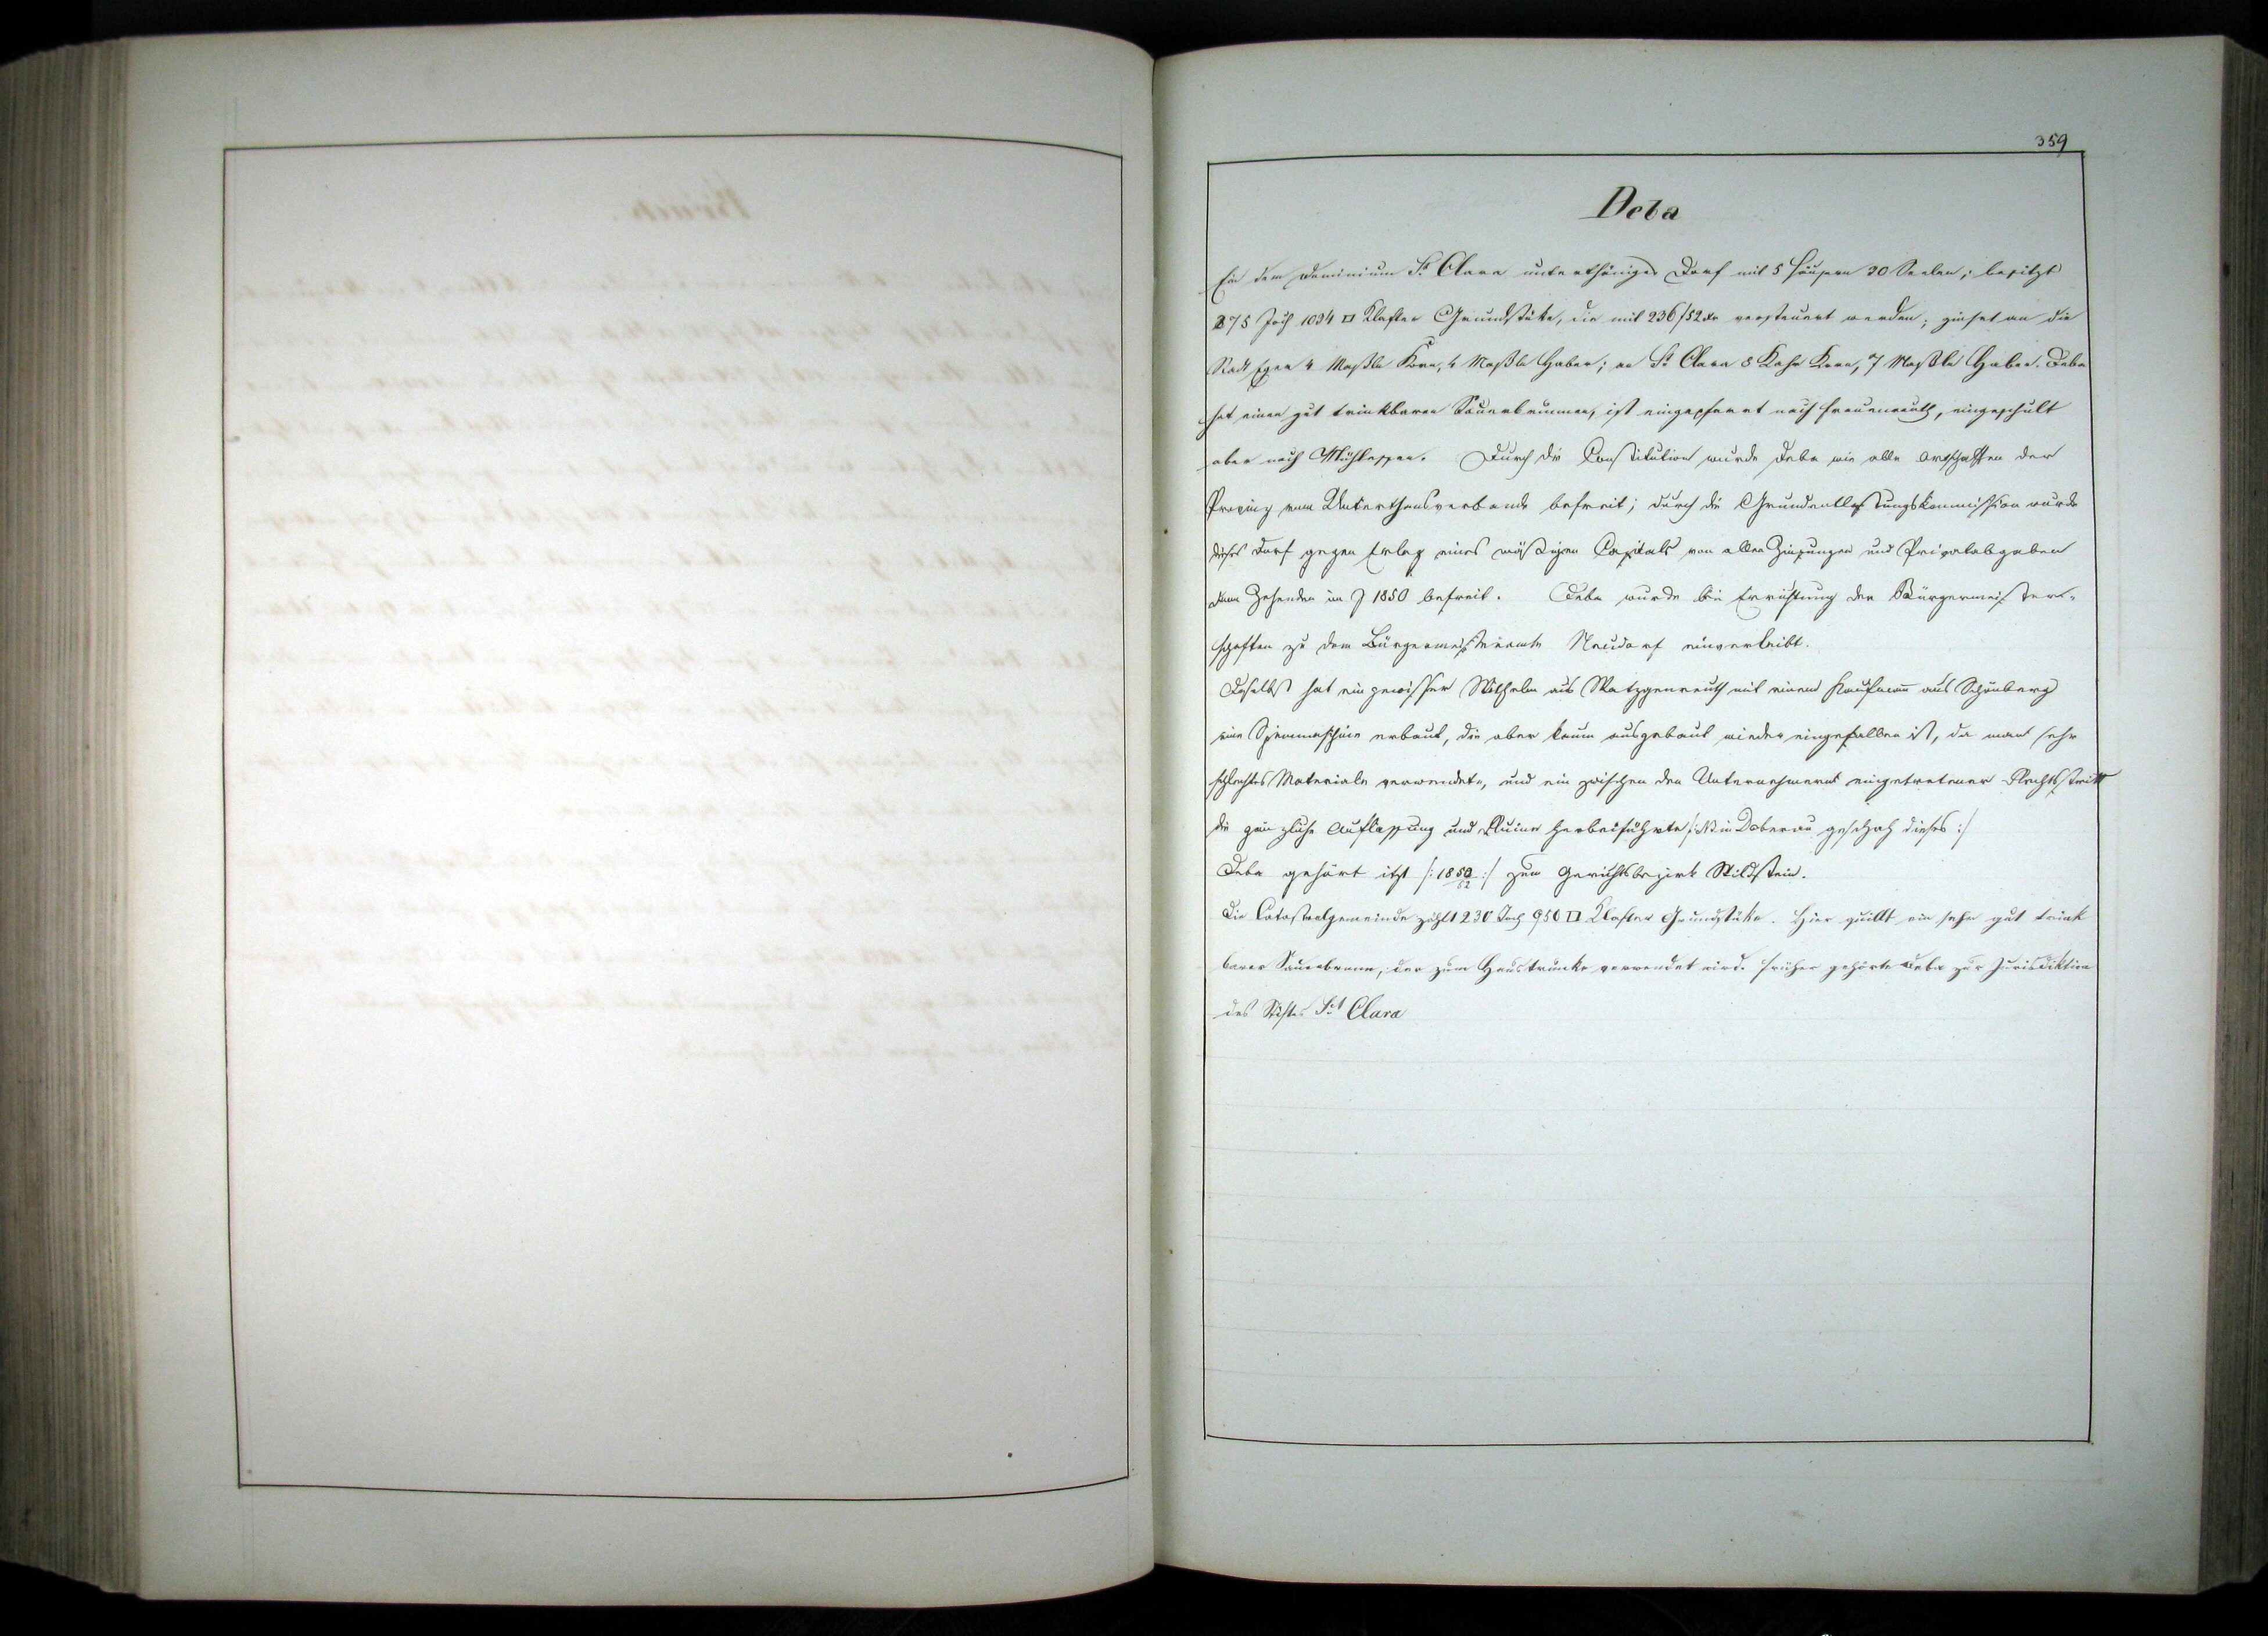 359
Deba
Ein dem Dominium St Clara unterthäniges Dorf mit 5 Häusern 30 Seelen; besitzt
275 Joch 1034 □ Klafter Grundstüke, die mit 236/52 xr versteuert werden; zinset an die
Stadt Eger 4 Maßle Korn, 4 Maßle Haber; an St Clara 8 Kahr Korn, 7 Maßle Haber. Deba
hat einen gut trinkbaren Sauerbrunnen, ist eingepfarrt nach Frauenreuth, eingeschult
aber nach Mühlessen. Durch die Constitution wurde Deba wie alle Ortschaften der
Provinz vom Unterthansverbande befreit; durch die Grundentlastungskommission wurde
dieses Dorf gegen Erlag eines mäßigen Capitals von allen Zinsungen und Privatabgaben
dann Zehenden im J 1850 befreit. Deba wurde bei Errichtung der Bürgermeister-
schaften zu dem Bürgermeisteramte Neudorf einverleibt.
Daselbst hat ein gewisser Wilhelm aus Watzgenreuth mit einem Kaufmann aus Schönberg
eine Spinnmaschine erbaut, die aber kaum ausgebaut wieder eingefallen ist, da man sehr
schlechtes Materiale verwendete, und ein zwischen den Unternehmern eingetretener Rechtsstreitt
die gänzliche Auflassung und Ruine herbeiführte /: NB in Doberau geschah dieses :/
Deba gehört itzt /: 1850/52 :/ zum Gerichtsbezirk Wildstein.
Die Catastralgemeinde zählt 230 Joch 950 □ Klafter Grundstüke. Hier quillt ein sehr gut trink
barer Sauerbrunn, der zum Haustrunke verwendet wird. Früher gehörte Deba zur Jurisdiktion
des Stiftes Sct Clara